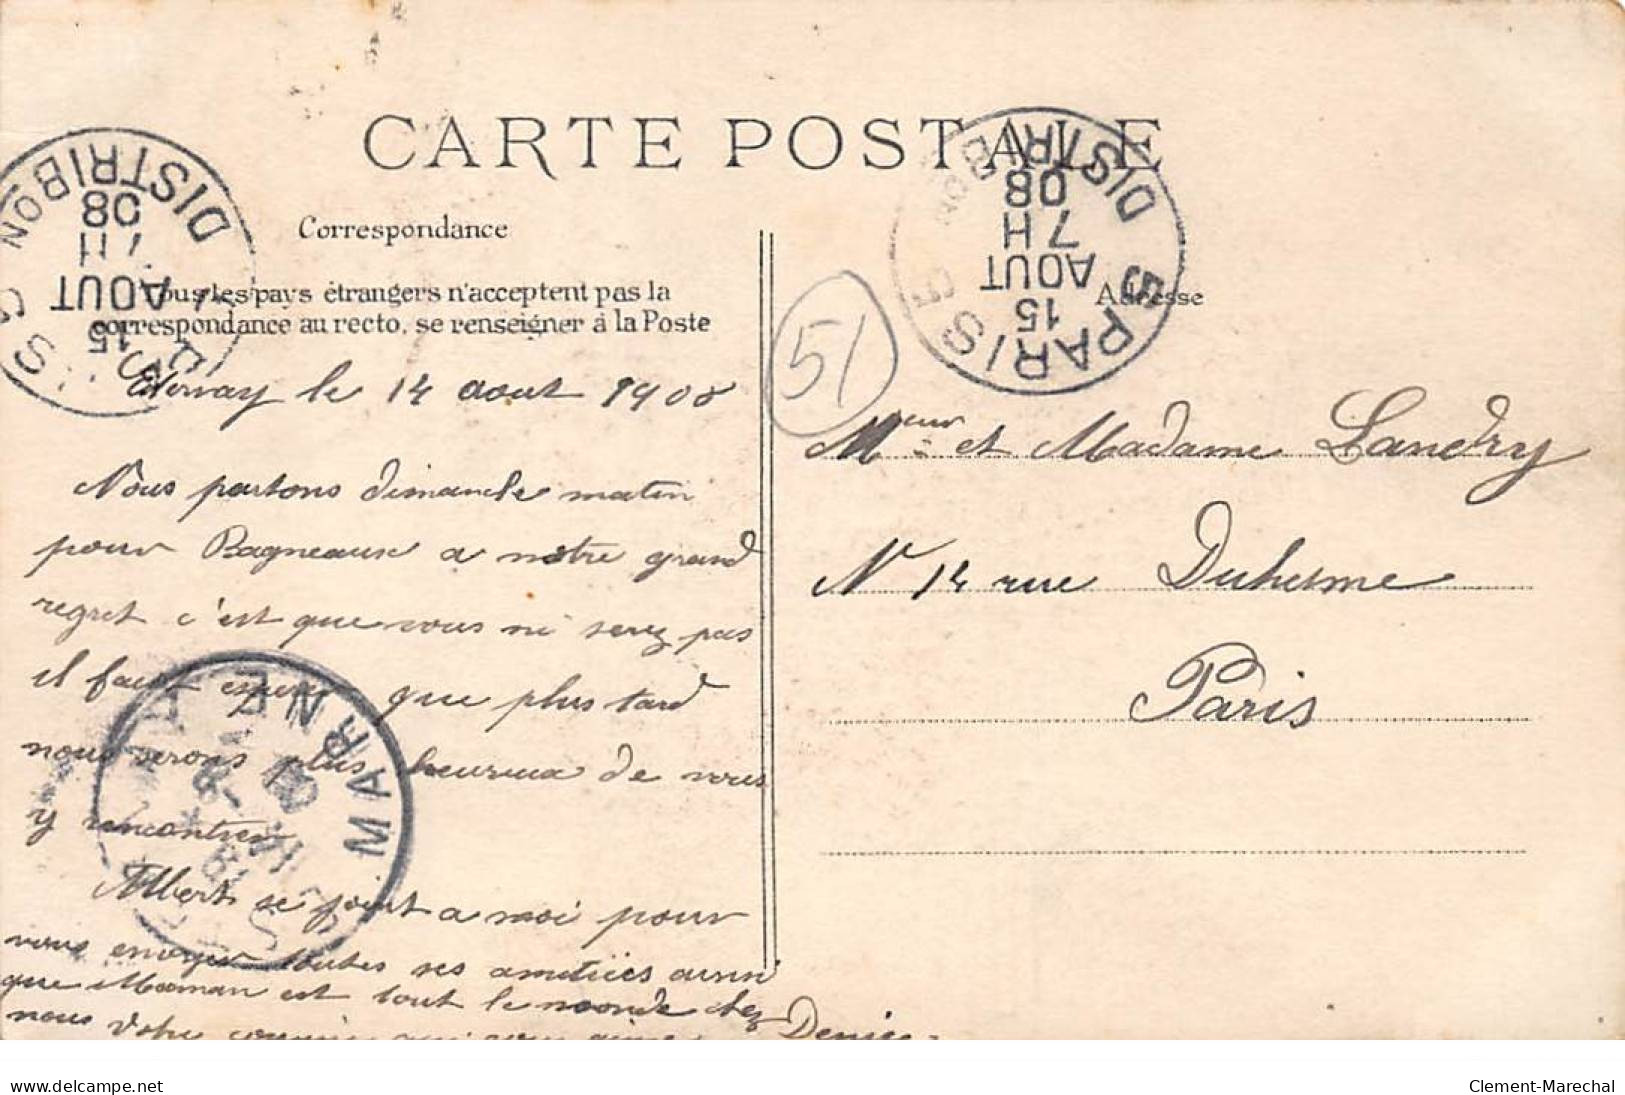 CARTE POSTALE
Correspondance
Tous les pays étrangers n'acceptent pas la
correspondance au recto, se renseigner à la Poste
le 14 aout 1908
Nous partons dimanche matin
pour Bagneaux a notre grand
regret c'est que vous ni serez pas
il faut esperer que plus tard
nous serons plus heureux de vous
y rencontrer
Albert se joint a moi pour
vous envoyer toutes ses amitiées aussi
que Maman est tout le monde chez
nous Votre cousine qui vous aime Denise
51
Adresse
Meur et Madame Landry
N° 14 rue Duhesme
Paris
PARIS
DISTRIBON
15
AOUT
08
PARIS 5
DISTRIBON
15
AOUT
7H
08
MARNE
www.delcampe.net
Clement-Marechal